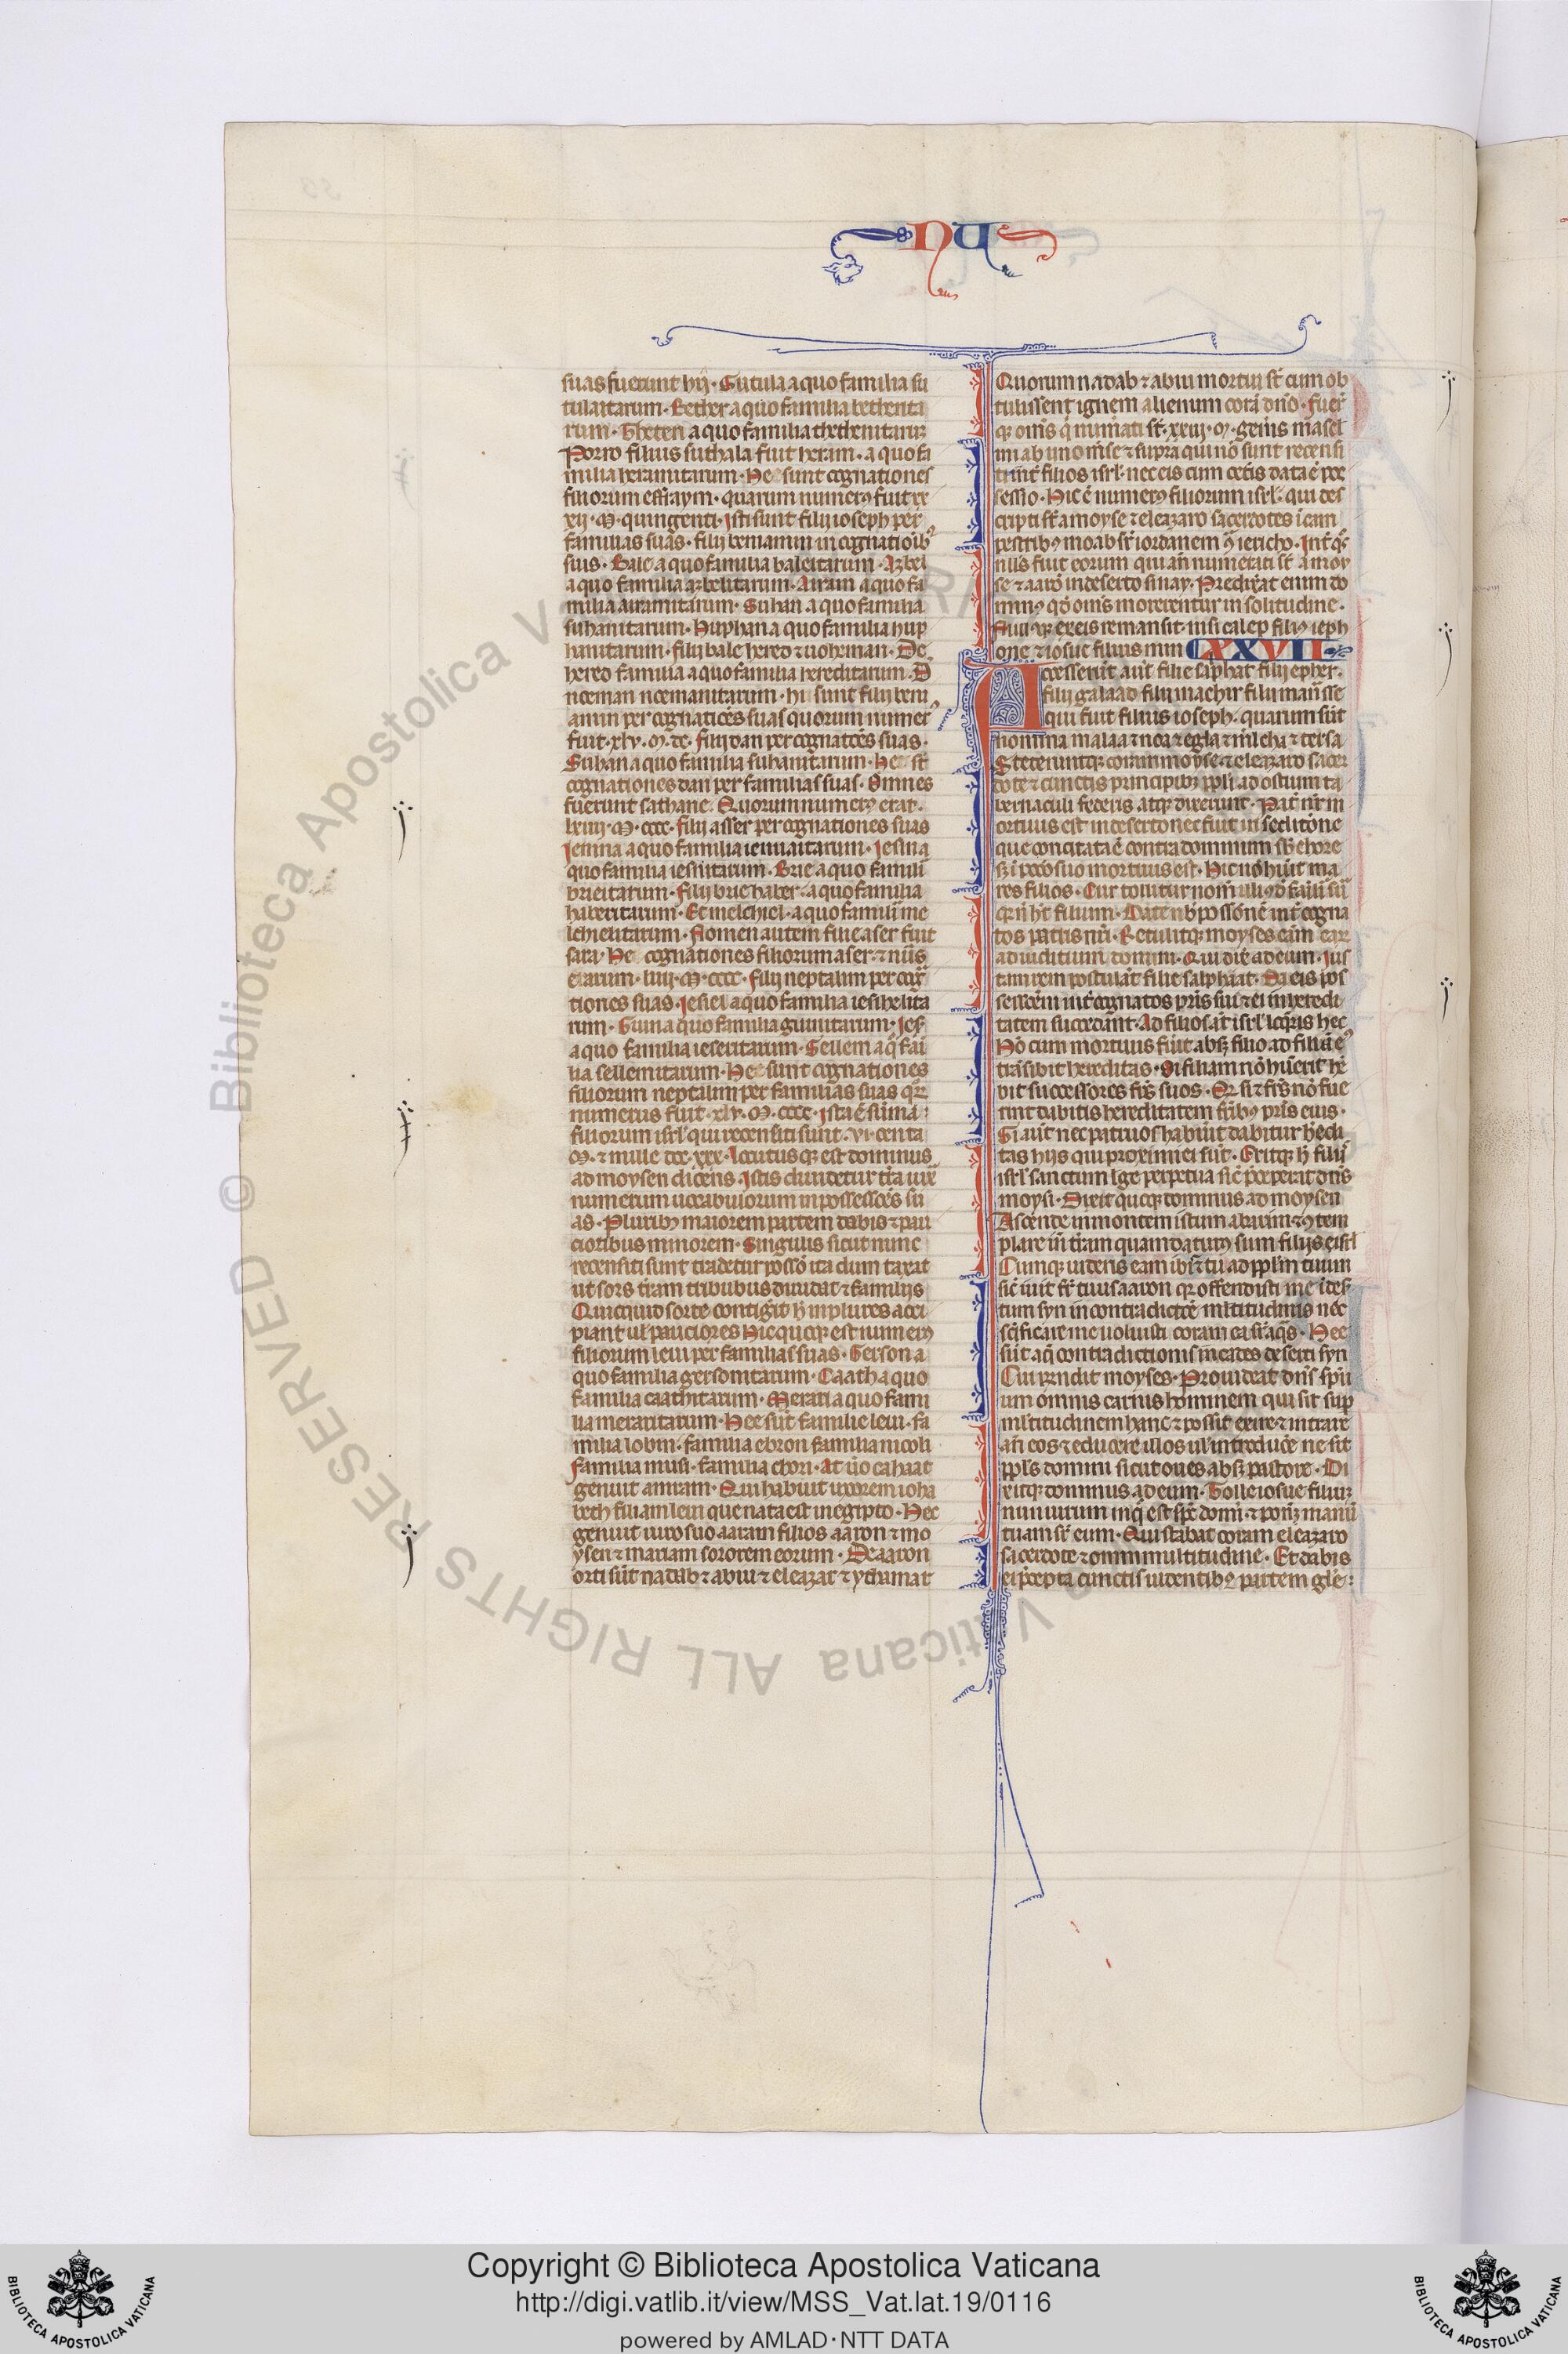 NU
suas fuerunt hij · Sutula a quo familia su
tulaitarum · Bether a quo familia betherita
rum · Thehen a quo familia thehenitaruz
Porro filius suthala fuit heram · a quo fa
milia heranitarum · Hee sunt cognationes
filiorum effraym · quarum numerꝰ fuit xx
xij · M · quingenti · Isti sunt filij ioseph per
familias suas · filij beniamin in cognatioibꝰ
suis · Bale a quo familia baleitarum · Azbel
a quo familia azbelitarum · Airam a quo fa
milia airamitarum · Suhan a quo familia
suhanitarum · Huphan a quo familia hup
hanitarum · filij bale hereo ⁊ noheman · De
hereo familia a quo familia hereditarum · D
noeman noemanitarum · hii sunt filij beni
amin per cognatiões suas quorum numerꝰ
fuit · xlv · M · dc · filij dan per cognatiões suas ·
Suhan a quo familia suhanitarum · Hee st̄
cognationes dan per familias suas · Omnes
fuerunt sathane · Quorum numerꝰ erat ·
lxiiij · M · cccc · filij asser per cognationes suas
Iemna a quo familia iemnaitarum · Iesui a
quo familia iesuitarum · Brie a quo famili
brieitarum · Filij brie haber · a quo familia
haberitarum · Et melchiel · a quo familia me
lchielitarum · Nomen autem filie aser fuit
sara · He cognationes filiorum aser · ⁊ nūs
eorum · liiij · M · cccc · filij neptalim per cog̃
tiones suas · Iesiel a quo familia iesihelita
rum · Guni a quo familia gunitarum · Ieser
a quo familia ieseritarum · Sellem a q̊ fam̃
lia sellemitarum · Hee sunt cognationes
filiorum neptalim per familias suas quoꝝ
numerus fuit · xlv · M · cccc · Ista ē sūma :
filiorum isrl̃ qui recensiti sunt · vi · centa
M · ⁊ mille dcc · xxx · Locutus q; est dominus
ad moysen dicens · Istis diuidetur tr̃a iuxª
numerum uocabulorum in possessiões su
as · Pluribꝰ maiorem partem dabis ⁊ pau
cioribus minorem · Singulis sicut nunc
recensiti sunt tradetur possõ ita dum taxat
ut sors tr̃am tribubus diuidat ⁊ familijs
Quicquid sorte contigerit h̾ in plures acci
piant ul̾ pauciores Hic quoq; est numerꝰ
filiorum leui per familias suas · Gerson a
quo familia gersonitarum · Caath a quo
familia caathitarum · Merari a quo fami
lia meraritarum · Hee sūt familie leui · fa
milia lobni · familia ebron familia mooli
familia musi · familia chori · at ůo cahaat
genuit amram · Qui habuit uxorem ioha
beth filiam leui que nata est in egipto · Hec
genuit uiro suo aaram filios aaron ⁊ mo
ysen ⁊ mariam sororem eorum · De aaron
orti sūt nadab ⁊ abiu ⁊ eleazar ⁊ ythamar
Quorum nadab ⁊ abiu mortui st̄ cum ob
tulissent ignem alienum corā dño · fuer̃
q; oīns q̇ numati st̄ · xxiij · M · geñis mascl
ini ab uno mse ⁊ supra qui nō sunt recensi
ti int̾ filios isrl̾ · nec eis cum cet̾is data ē pos
sessio · Hic ē numerꝰ filiorum isrl̾ · qui des
cripti st̄ a moyse ⁊ eleazaro sacerdotes in cam
pestribꝰ moab sr̃ iordanem ꝯ̃ iericho · Int̾ q̊s
nullꝰ fuit eorum qui an̄ numerati st̄ a moy
se ⁊ aarō in deserto sinay · Predix̾at enim do
minꝰ qd̾ om̄s morerentur in solitudine ·
Nullꝰ q; ex eis remansit · nisi calep filiꝰ ieph
one ⁊ iosue filius nun CXXVII
Accesserūt aūt filie salphat filij epher ·
filij galaad filij machir filij manasse
qui fuit filius ioseph · quarum sūt
nomina malaa ⁊ noa ⁊ egla ⁊ mlcha ⁊ tersa
Steteruntq; coram moyse ⁊ eleazaro sacer
dote ⁊ cunctis principibꝫ ppl̾i ad ostium ta
bernaculi federis atq; dixerunt · Pat̾ nr̄ m
ortuus est in deserto nec fuit in seditiõne
que concitata ē contra dominum sb̾ chore
sꝫ ī pccō suo mortuus est · Hic nō hūit ma
res filios · Cur tollitur nom̃ illiꝰ d̾ famīl sua
q; n̄ ht̄ filium · Date nb̾ possionē int̾ cogna
tos patris nr̄i · Retulitq; moyses cām eaꝝ
ad iudicium domini · Qui dix̾ ad eum · Ius
tam rem postulāt filie salphaat · Da eis pos
sessiõem int̾ cognatos pr̄is sui ⁊ ei in heredi
tatem succedant · Ad filios āt isrl̾ loq̃ris hec
Hō cum mortuus fūit absꝫ filio ad filiā eꝰ
trāsibit hereditas · Si filiam nō hūerit he
bit successores fr̄s suos · Qr si ⁊ fr̄s nō fue
rint dabitis hereditatem fr̄ibꝰ pr̄is eius ·
Si aūt nec patruos habūit dabitur hedi
tas hijs qui proximi ei sūt · Eritq; h̾ filijs
isrl̾ sanctum lege perpetua sic̄ p̄ceperat dñs
moysi · Dixit quoq; dominus ad moysen
Ascende in montem istum abarim ⁊ ꝯtem
plare in̄ tr̄am quam daturꝰ sum filijs isrl̾
Cumq; uideris eam ibis ⁊ tu ad ppl̾m tuum
sic̄ iuit fr̄ tuus aaron q; offendisti me ī des
tum syn in contradictiõe mltitudinis nec
scīficare me uoluisti coram ea sr̄ aq̃s · Hee
sūt aq̃ contradictionis in cades deserti syn
Cui rn̄dit moyses · Prouideat dñs spūu
um omnis carnis hominem qui sit sup̃
ml̾titudinem hanc ⁊ possit exire ⁊ intrare
an̄ eos ⁊ educere illos ul̾ introducẽ ne sit
ppl̾s domini sicut oues absꝫ pastore · Di
xitq; dominus ad eum · Tolle iosue filiuꝫ
nun uirum inq̊ est sp̄c domī · ⁊ poneꝫ manū
tuam sr̄ eum · Qui stabat coram eleazaro
sacerdote ⁊ omni multitudine · Et dabis
ei p̄cepta cunctis uidentibꝰ partem gl̾e :
© Biblioteca Apostolica Vaticana ALL RIGHTS RESERVED
Copyright © Biblioteca Apostolica Vaticana
http://digi.vatlib.it/view/MSS_Vat.lat.19/0116
powered by AMLAD·NTT DATA
BIBLIOTECA APOSTOLICA VATICANA
BIBLIOTECA APOSTOLICA VATICANA